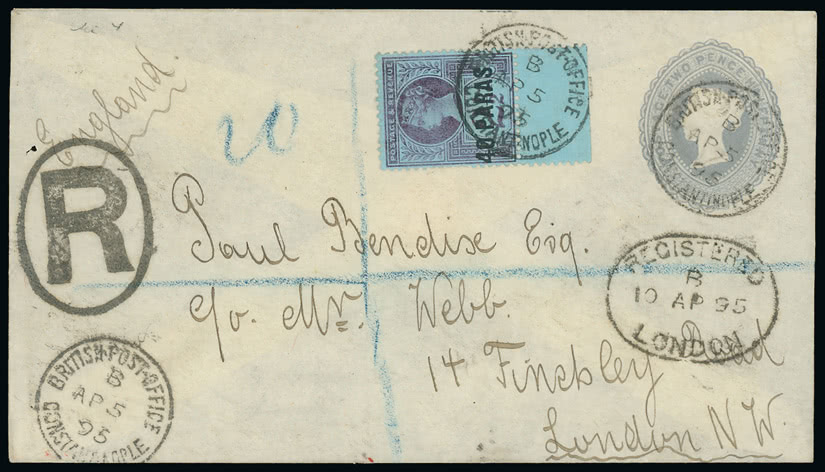 England.
20
POSTAGE & REVENUE
40 PARAS
BRITISH-POST-OFFICE
B
AP 5
95
CONSTANTINOPLE
TWO PENCE
BRITISH-POST-OFFICE
B
AP 5
95
CONSTANTINOPLE
R
Paul Bendix Esq.
c/o. Mr. Webb.
14 Finchley Road
London N.W.
REGISTERED
B
10 AP 95
LONDON
BRITISH-POST-OFFICE
B
AP 5
95
CONSTANTINOPLE